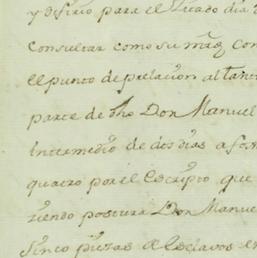 y difirio para el citado dia
consultar como su mrd con
el punto de prelacion al tan
parte de dho Don Manuel
intermedio de dos dias a
quatro por el escripto que
riendo postura Don Manue
sinco piezas de esclavos en